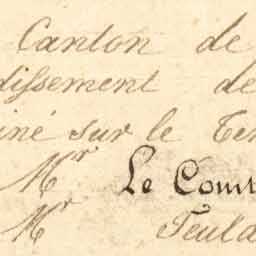 Canton de
dissement de
iné sur le Ter
Mr Le Comt
Mr Teula